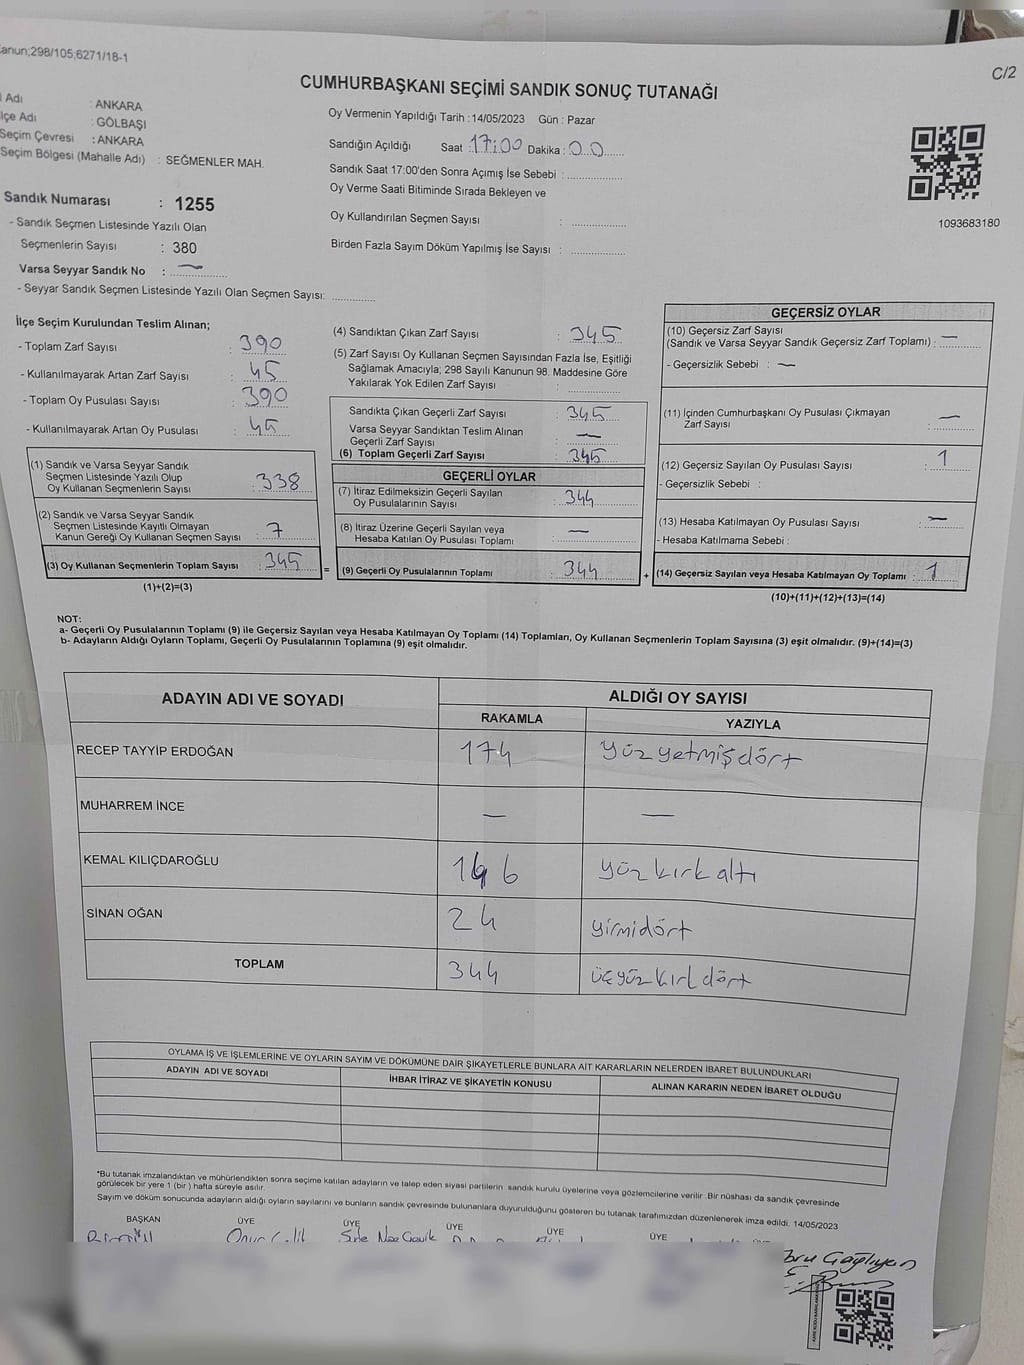 anun;298/105;6271/18-1
C/2
CUMHURBAŞKANI SEÇİMİ SANDIK SONUÇ TUTANAĞI
l Adı : ANKARA
lçe Adı : GÖLBAŞI
Seçim Çevresi : ANKARA
Seçim Bölgesi (Mahalle Adı) : SEĞMENLER MAH.
Sandık Numarası : 1255
- Sandık Seçmen Listesinde Yazılı Olan
Seçmenlerin Sayısı : 380
Varsa Seyyar Sandık No : —
- Seyyar Sandık Seçmen Listesinde Yazılı Olan Seçmen Sayısı: ..............
Oy Vermenin Yapıldığı Tarih :14/05/2023 Gün : Pazar
Sandığın Açıldığı Saat :17:00 Dakika :00
Sandık Saat 17:00'den Sonra Açımış İse Sebebi : ................
Oy Verme Saati Bitiminde Sırada Bekleyen ve
Oy Kullandırılan Seçmen Sayısı : ................
Birden Fazla Sayım Döküm Yapılmış İse Sayısı : ................
1093683180
İlçe Seçim Kurulundan Teslim Alınan;
- Toplam Zarf Sayısı : 390
- Kullanılmayarak Artan Zarf Sayısı : 45
- Toplam Oy Pusulası Sayısı : 390
- Kullanılmayarak Artan Oy Pusulası : 45
(1) Sandık ve Varsa Seyyar Sandık
Seçmen Listesinde Yazılı Olup
Oy Kullanan Seçmenlerin Sayısı : 338
(2) Sandık ve Varsa Seyyar Sandık
Seçmen Listesinde Kayıtlı Olmayan
Kanun Gereği Oy Kullanan Seçmen Sayısı : 7
(3) Oy Kullanan Seçmenlerin Toplam Sayısı : 345
(1)+(2)=(3)
(4) Sandıktan Çıkan Zarf Sayısı : 345
(5) Zarf Sayısı Oy Kullanan Seçmen Sayısından Fazla İse, Eşitliği
Sağlamak Amacıyla; 298 Sayılı Kanunun 98. Maddesine Göre
Yakılarak Yok Edilen Zarf Sayısı : ..............
Sandıkta Çıkan Geçerli Zarf Sayısı : 345
Varsa Seyyar Sandıktan Teslim Alınan
Geçerli Zarf Sayısı : —
(6) Toplam Geçerli Zarf Sayısı : 345
GEÇERLİ OYLAR
(7) İtiraz Edilmeksizin Geçerli Sayılan
Oy Pusulalarının Sayısı : 344
(8) İtiraz Üzerine Geçerli Sayılan veya
Hesaba Katılan Oy Pusulası Toplamı : —
= (9) Geçerli Oy Pusulalarının Toplamı : 344
GEÇERSİZ OYLAR
(10) Geçersiz Zarf Sayısı
(Sandık ve Varsa Seyyar Sandık Geçersiz Zarf Toplamı) : —
- Geçersizlik Sebebi : —
(11) İçinden Cumhurbaşkanı Oy Pusulası Çıkmayan
Zarf Sayısı : —
(12) Geçersiz Sayılan Oy Pusulası Sayısı : 1
- Geçersizlik Sebebi :
(13) Hesaba Katılmayan Oy Pusulası Sayısı : —
- Hesaba Katılmama Sebebi :
+ (14) Geçersiz Sayılan veya Hesaba Katılmayan Oy Toplamı : 1
(10)+(11)+(12)+(13)=(14)
NOT:
a- Geçerli Oy Pusulalarının Toplamı (9) ile Geçersiz Sayılan veya Hesaba Katılmayan Oy Toplamı (14) Toplamları, Oy Kullanan Seçmenlerin Toplam Sayısına (3) eşit olmalıdır. (9)+(14)=(3)
b- Adayların Aldığı Oyların Toplamı, Geçerli Oy Pusulalarının Toplamına (9) eşit olmalıdır.
ADAYIN ADI VE SOYADI ALDIĞI OY SAYISI
RAKAMLA YAZIYLA
RECEP TAYYİP ERDOĞAN 174 yüzyetmişdört
MUHARREM İNCE — —
KEMAL KILIÇDAROĞLU 146 yüzkırkaltı
SİNAN OĞAN 24 yirmidört
TOPLAM 344 üçyüzkırkdört
OYLAMA İŞ VE İŞLEMLERİNE VE OYLARIN SAYIM VE DÖKÜMÜNE DAİR ŞİKAYETLERLE BUNLARA AİT KARARLARIN NELERDEN İBARET BULUNDUKLARI
ADAYIN ADI VE SOYADI İHBAR İTİRAZ VE ŞİKAYETİN KONUSU ALINAN KARARIN NEDEN İBARET OLDUĞU
*Bu tutanak imzalandıktan ve mühürlendikten sonra seçime katılan adayların ve talep eden siyasi partilerin sandık kurulu üyelerine veya gözlemcilerine verilir .Bir nüshası da sandık çevresinde
görülecek bir yere 1 (bir ) hafta süreyle asılır.
Sayım ve döküm sonucunda adayların aldığı oyların sayılarını ve bunların sandık çevresinde bulunanlara duyurulduğunu gösteren bu tutanak tarafımızdan düzenlenerek imza edildi. 14/05/2023
BAŞKAN ÜYE ÜYE ÜYE ÜYE ÜYE